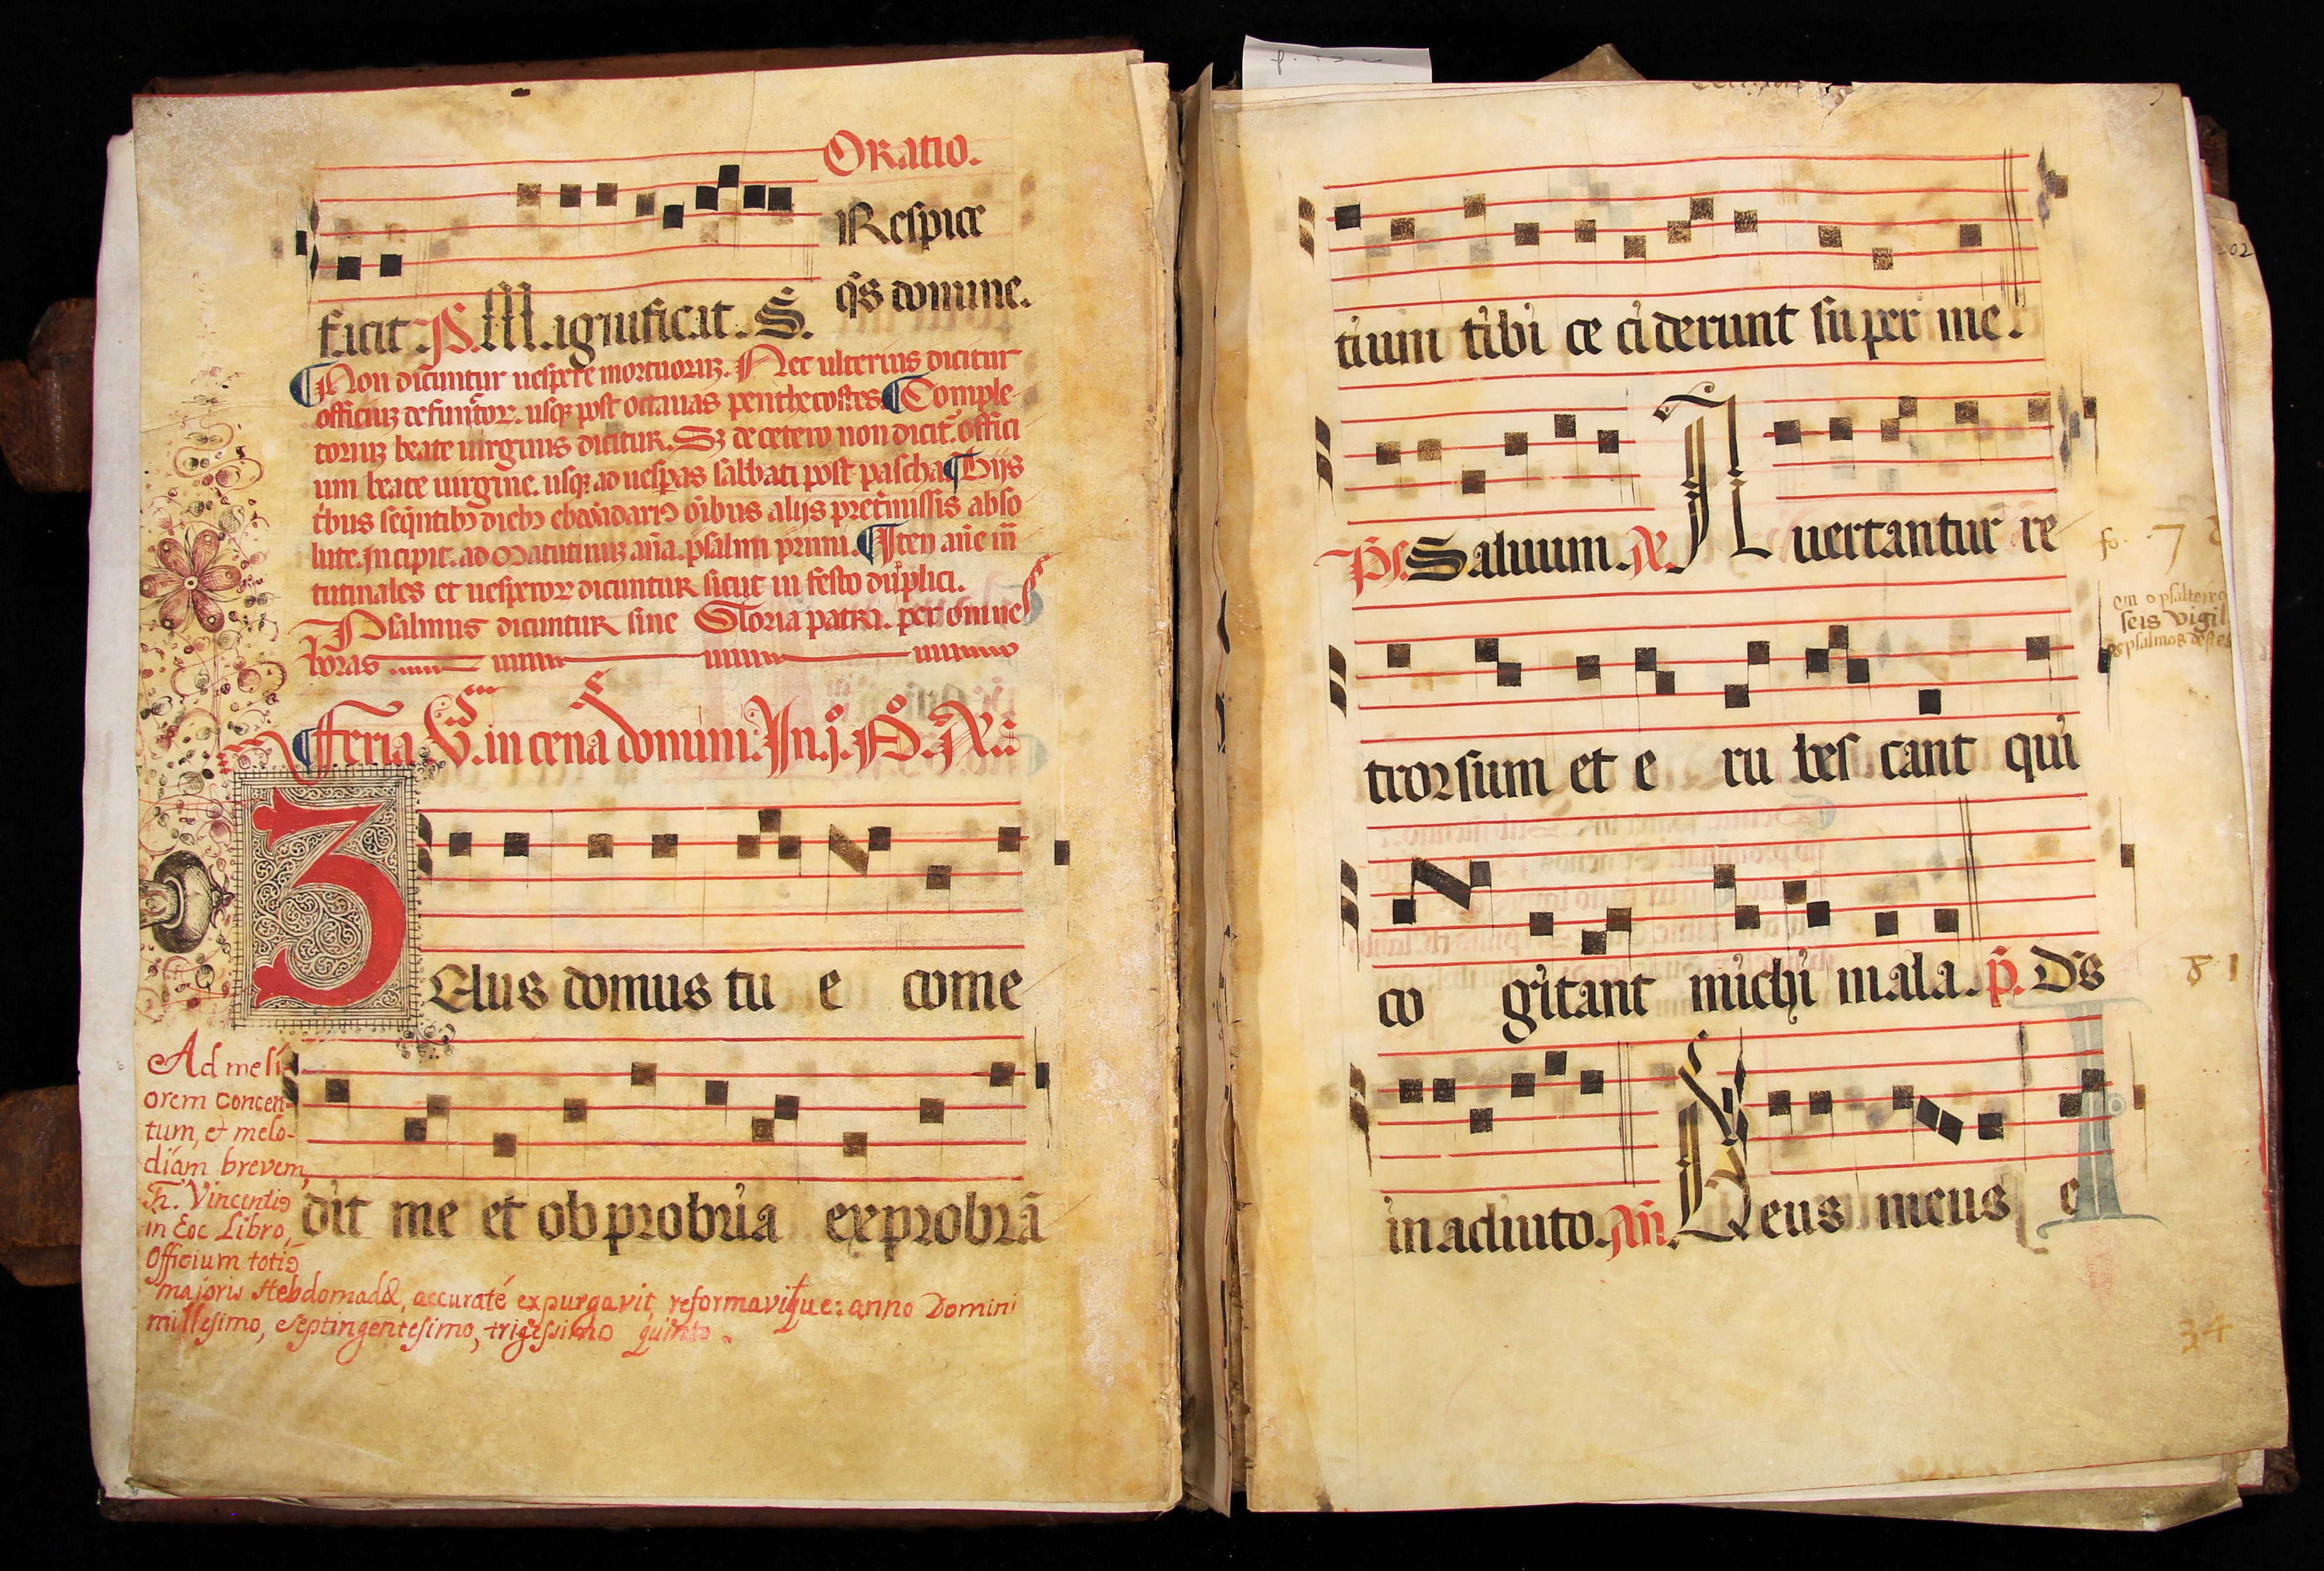 Oratio.
Respice
q̃s domine.
facit. P̃. Magnificat. S̃.
¶Non dicuntur uespere mortuoruz. Nec ulterius dicitur
officiuz defunctor. usq; post octauas penthecostes. ¶Comple-
toriuz beate uirginis dicitur. Sz de cetero non dicit̃. offici
um beate uirgine. usq; ad uesp̃as sabbati post pascha. ¶Hijs
t̃bus seq̃ntibꝰ diebꝰ ebdõadariꝰ õibus alijs pretmissis abso
lute. Incipit. ad Matutinuz aña. psalmi primi. ¶Iteꝫ añe
tutinales et uesperoꝝ dicuntur sicut in festo duplici.
Psalmus dicuntur sine Gloria patri. per omnes
horas
¶Feria V. in cena domini. In. j. Nº. Añ.
ZElus domus tu e come
dit me et obprobria exprobrã
Ad meli-
orem concen-
tum, et melo-
diam brevem,
Fr. Vincentiꝰ
in hoc Libro,
Officium totiꝰ
majoris Hebdomadæ, accuraté expurgavit, reformavitque: anno Domini
millesimo, septingentesimo, trigessimo quinto.
tium tibi ce ciderunt super me.
Ps. Saluum. Añ. Auertantur re
trorsum et e ru bes cant qui
co gitant michi mala. p̃. Dẽs
in adiuto. Añ. Deus meus e
fo. 7
em o psalteiro
seis vigil
os psalmos deste
81
34
202